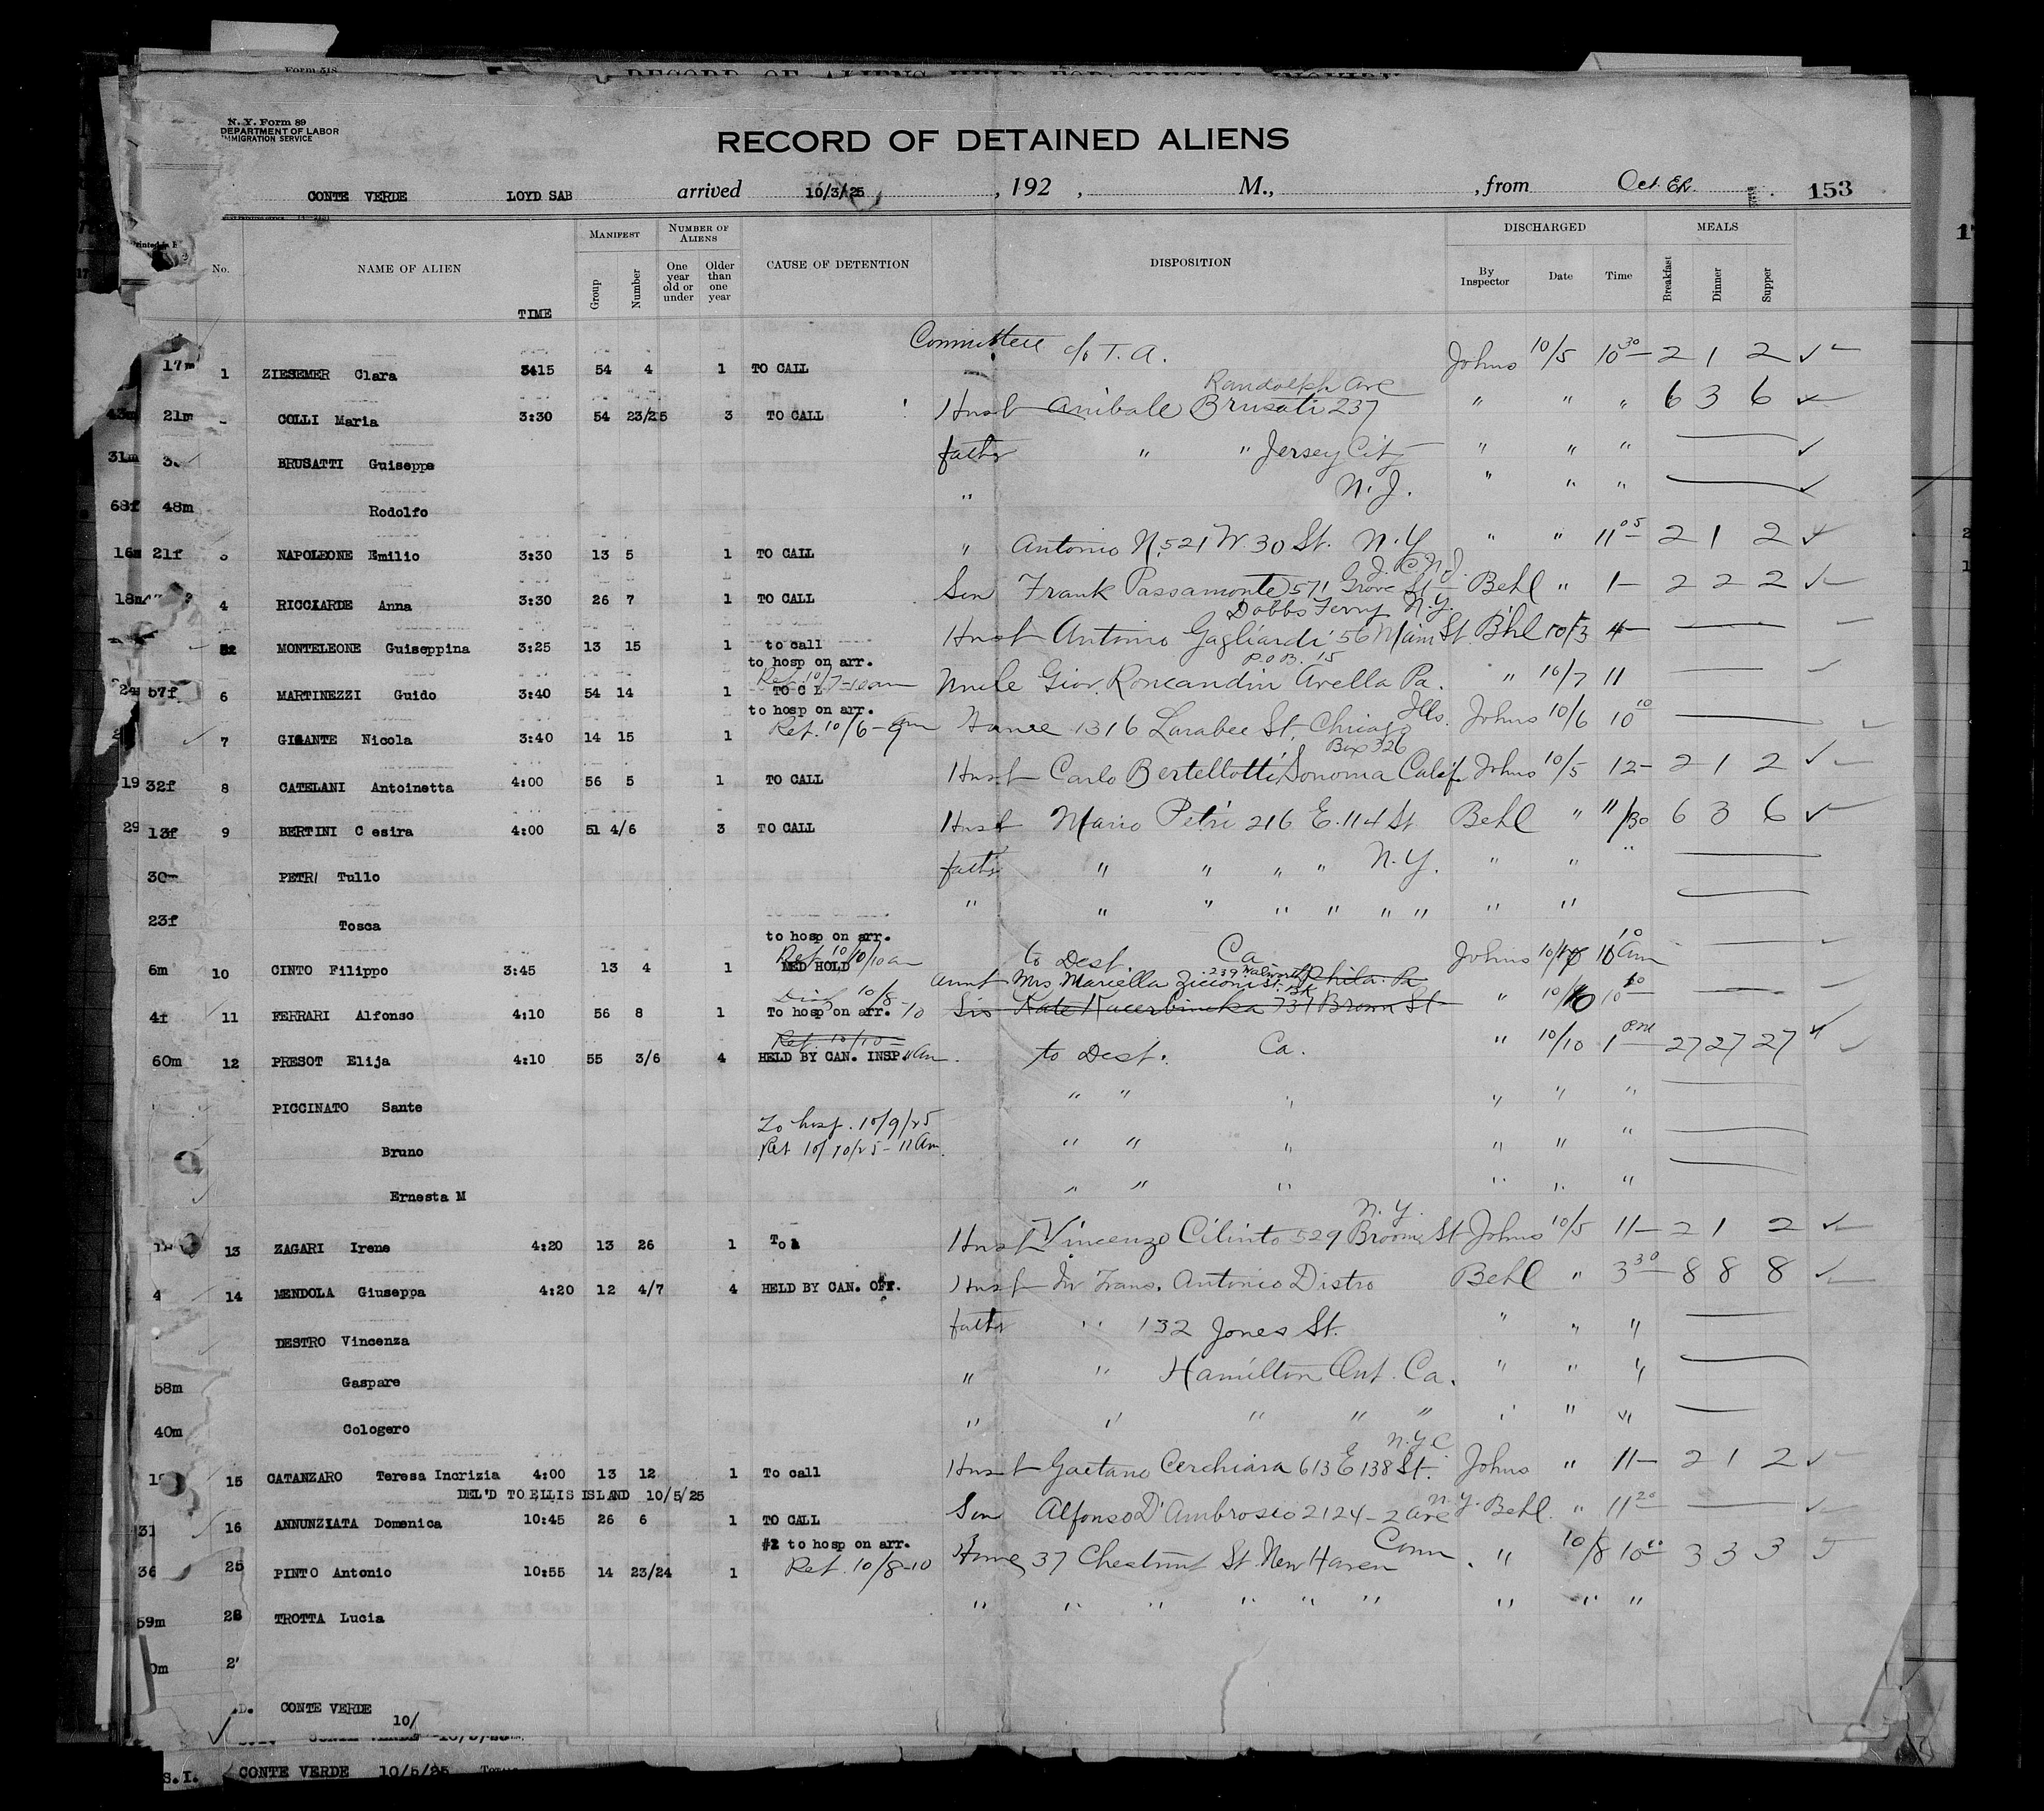 Form 518
RECORD OF ALIENS HELD FOR SPECIAL INQUIRY
N. Y. Form 89
DEPARTMENT OF LABOR
IMMIGRATION SERVICE
RECORD OF DETAINED ALIENS
CONTE VERDE LOYD SAB arrived 10/3/25, 192 , M., , from 153
No. NAME OF ALIEN TIME MANIFEST Group Number NUMBER OF ALIENS One year old or under Older than one year CAUSE OF DETENTION DISPOSITION DISCHARGED By Inspector Date Time MEALS Breakfast Dinner Supper
Committee c/o T. A.
17m 1 ZIESEMER Clara 3415 54 4 1 TO CALL Johns 10/5 10 30 2 1 2
Randolph Ave
43m 21m COLLI Maria 3:30 54 23/25 3 TO CALL Husb Anibale Brusati 237 " " " 6 3 6
31m BRUSATTI Guiseppe father " " Jersey City " " "
68f 48m Rodolfo " N. J. " " "
16m 21f NAPOLEONE Emilio 3:30 13 5 1 TO CALL " Antonio N, 521 W. 30 St. N. Y " " 11 05 2 1 2
J. C. N. J.
18m 4 RICCIARDE Anna 3:30 26 7 1 TO CALL Son Frank Passamonte 571 Grove St Behl " 1- 2 2 2
Dobbs Ferry N. Y.
MONTELEONE Guiseppina 3:25 13 15 1 to call Husb Antonio Gagliardi 56 Main St Bhl 10/3 4
to hosp on arr.
Ret. 10/7-10am P.O B. 15
57f 6 MARTINEZZI Guido 3:40 54 14 1 TO C L Uncle Giov. Roncandin Avella Pa. " 10/7 11
to hosp on arr.
Ret. 10/6-9am Ills.
7 GIGANTE Nicola 3:40 14 15 1 1316 Larabee St. Chicago Johns 10/6 10 10
Box 326
19 32f 8 CATELANI Antoinetta 4:00 56 5 1 TO CALL Husb Carlo Bertellotti Sonoma Calif Johns 10/5 12- 2 1 2
29 13f 9 BERTINI C esira 4:00 51 4/6 3 TO CALL Husb Mario Petri 216 E. 114 St Behl " 11/30 6 3 6
30m PETRI Tullo father " " " " N. Y. " " "
23f Tosca " " " " " " " " "
to hosp on arr.
Ret 10/10/10am
6m 10 CINTO Filippo 3:45 13 4 1 MED HOLD to Dest. Ca Johns
Aunt Mrs. Mariella St. Bk Phila. Pa
10/8-10
4f 11 FERRARI Alfonso 4:10 56 8 1 To hosp on arr. Sis Kate 737 Brown St " 10/10
Ret. 10/10
60m 12 PRESOT Elija 4:10 55 3/6 4 HELD BY CAN. INSP. 11am to Dest. Ca. " 10/10 1 PM 27 27 27
PICCINATO Sante " " " " " "
To hosp. 10/9/25
Bruno Ret 10/10/25-11am. " " " " " "
Ernesta M " " " " " "
N. Y.
13 ZAGARI Irene 4:20 13 26 1 To Husb Vincenzo Cilinto 529 Broome St Johns 10/5 11- 2 1 2
14 MENDOLA Giuseppa 4:20 12 4/7 4 HELD BY CAN. OFF. Husb In Trans. Antonio Distro Behl " 3 30 8 8 8
DESTRO Vincenza father " 132 Jones St. " " "
58m Gaspare " " Hamilton Ont. Ca. " " "
40m Cologero " " " " " " " "
N. Y. C.
15 CATANZARO Teresa Incrizia 4:00 13 12 1 To call Husb Gaetano Cerchiara 613 E 138 St. Johns " 11- 2 1 2
DEL'D TO ELLIS ISLAND 10/5/25
31 16 ANNUNZIATA Domenica 10:45 26 6 1 TO CALL Son Alfonso D'Ambrosio 2124-2 Ave N. Y. Behl. " 11 20
#2 to hosp on arr.
36 25 PINTO Antonio 10:55 14 23/24 1 Ret. 10/8-10 Home, 37 Chestnut St New Haven Conn. " 10/8 10 3 3 3
59m 28 TROTTA Lucia " " " " " " " " " "
0m 2'
.D. CONTE VERDE 10/
CONTE VERDE
S. I. CONTE VERDE 10/5/25